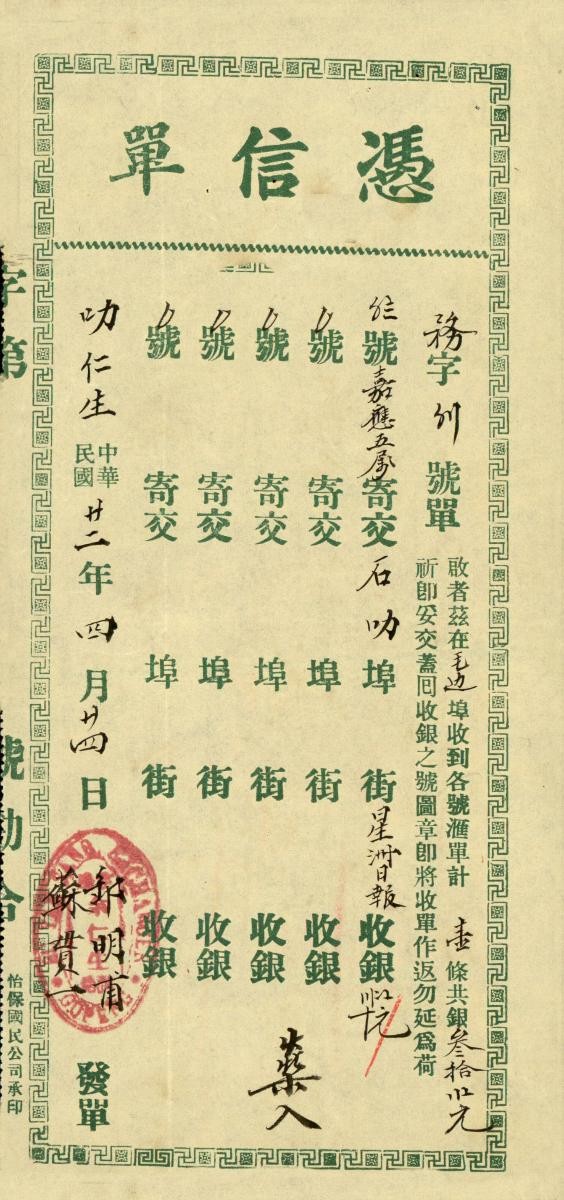 憑信單
務字列號單
啟者茲在毛边埠收到各號滙單計壹條共銀叁拾元
祈卽妥交蓋囘收銀之號圖章卽將收單作返勿延爲荷
號嘉應五属寄交石叻埠街星洲日報收銀
號寄交埠街收銀
號寄交埠街收銀
號寄交埠街收銀
號寄交埠街收銀
入
叻仁生中華民國廿二年四月廿四日發單
明甫
蘇貫一
EXCHANGE
GOPENG
怡保國民公司承印
字第號